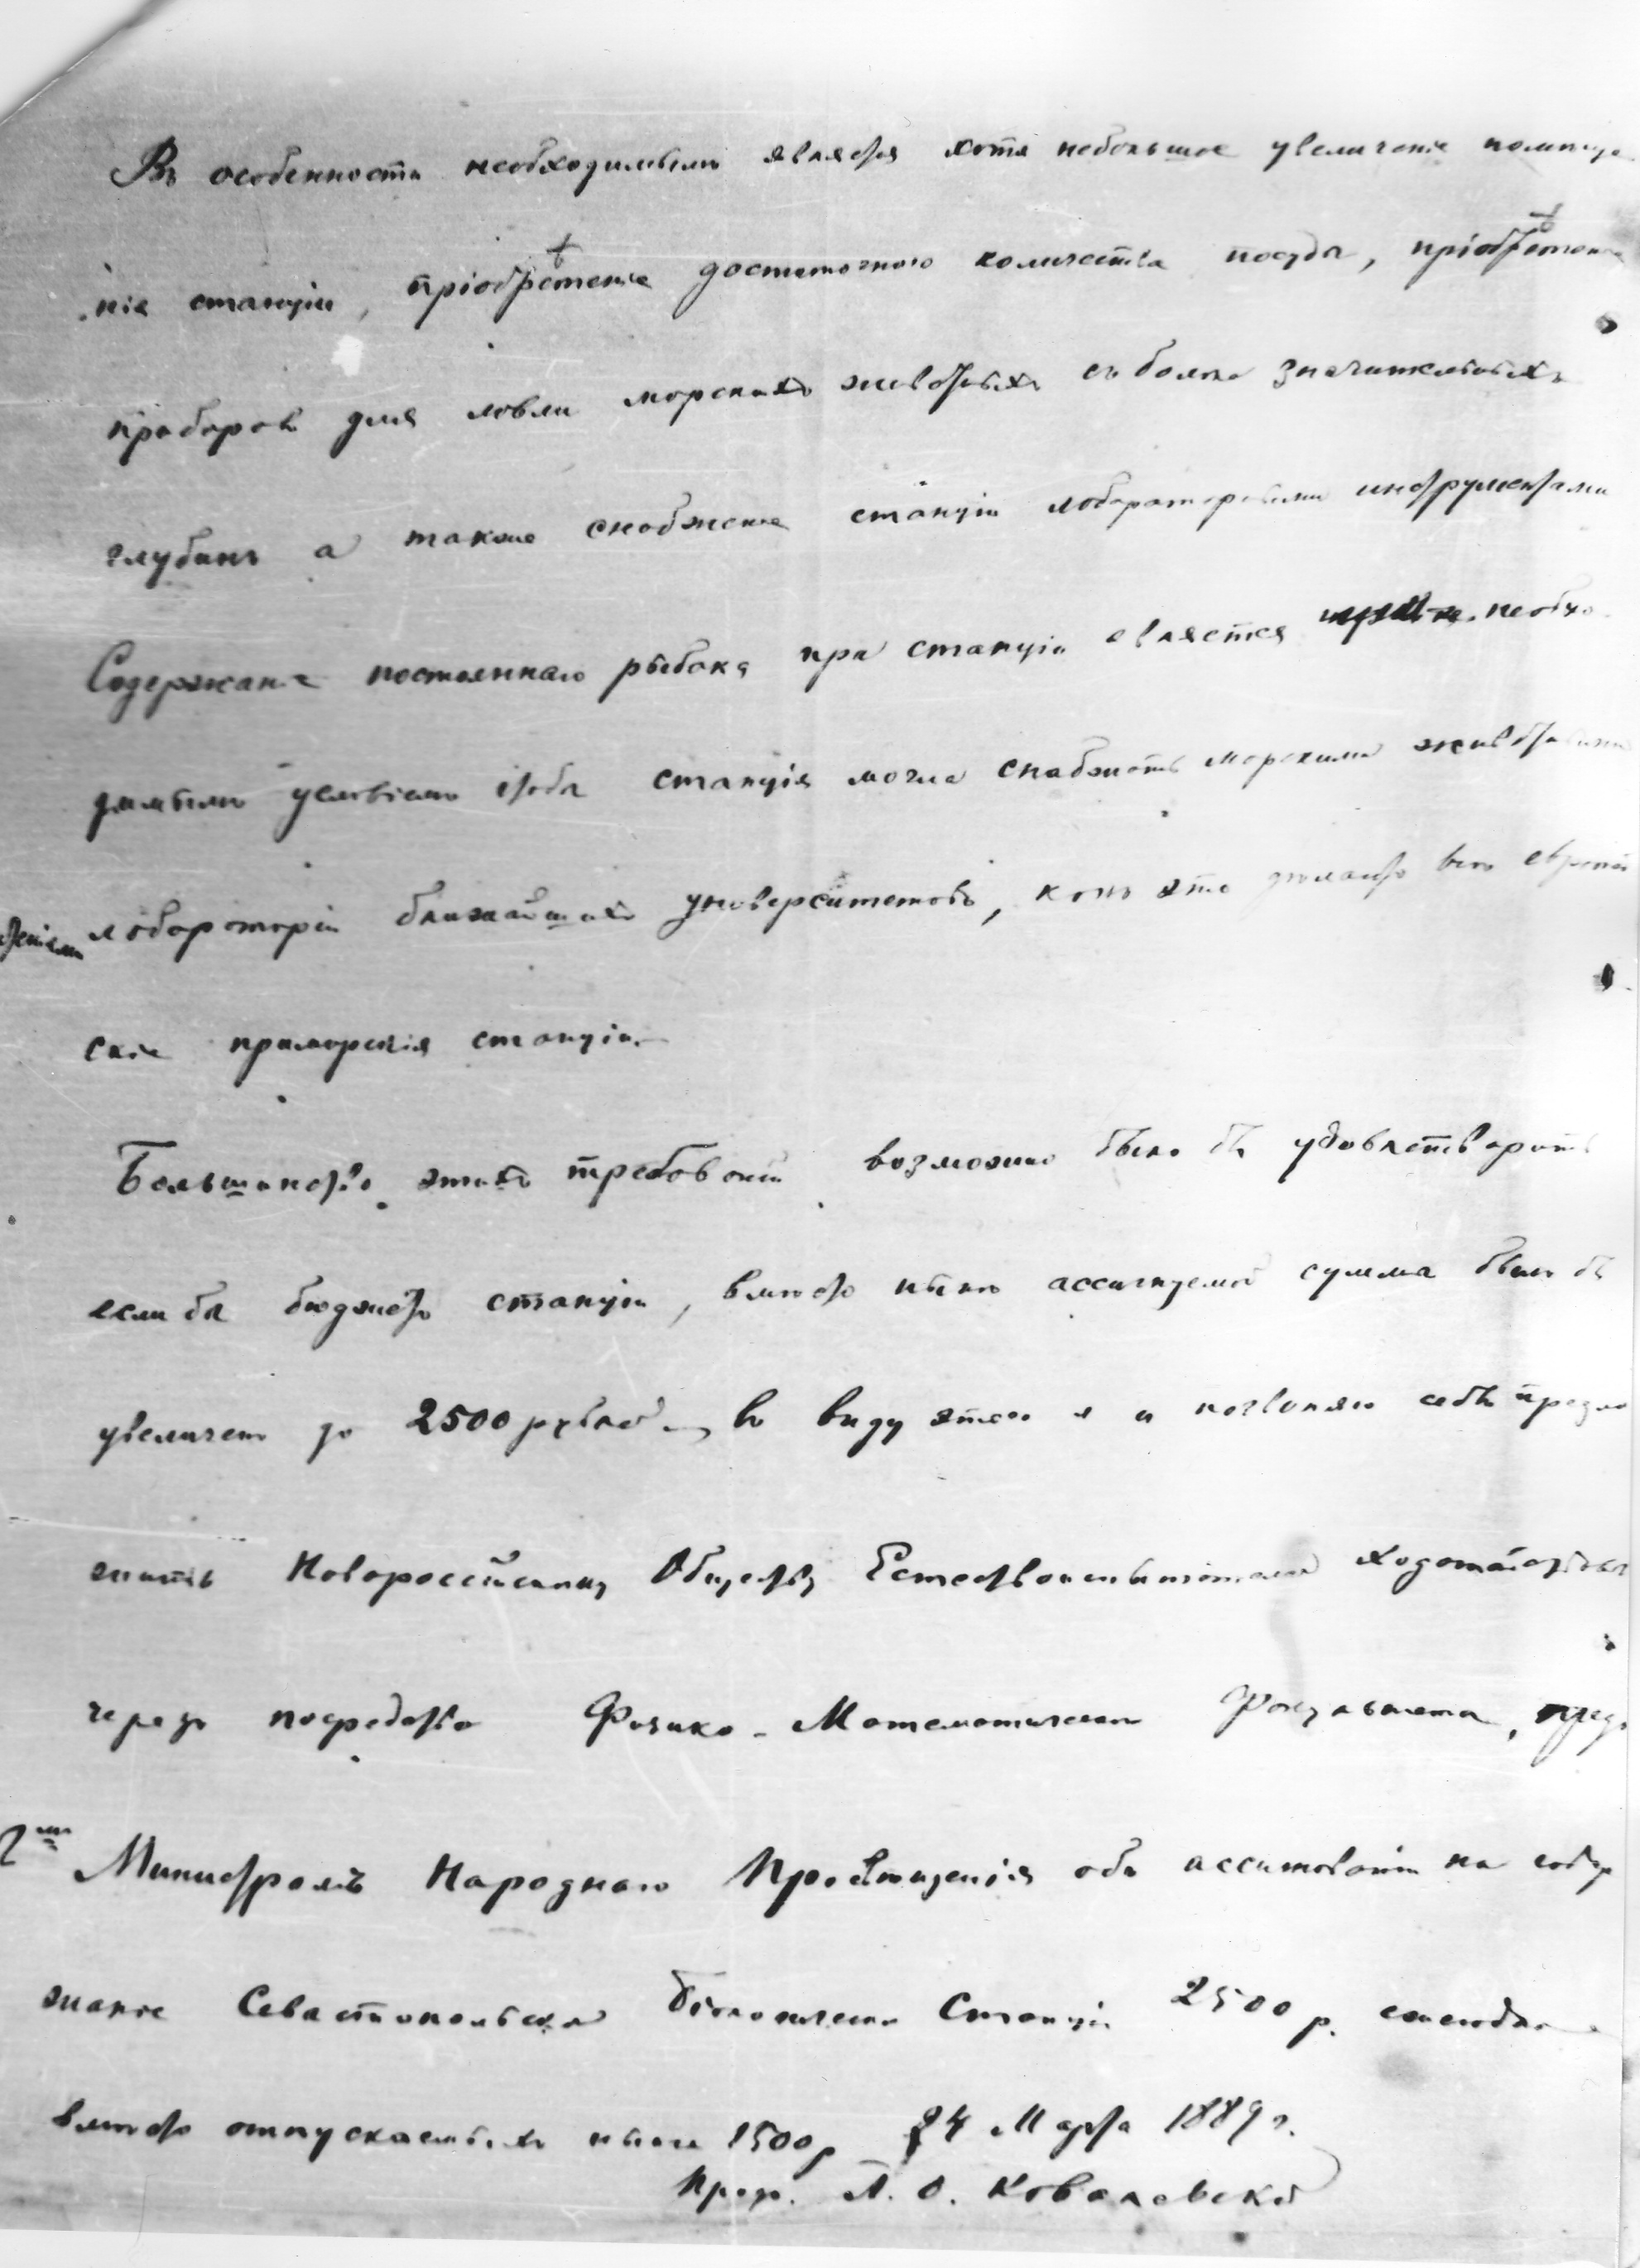 Въ особенности необходимымъ является хотя небольшое увеличенiе помѣще
нiе станцiи, прiобрѣтенiе достаточного количества посуды, прiобрѣтенiе
приборов для ловли морскихъ животныхъ съ болѣе значительныхъ
глубинъ а также снабженiе станцiи лабораторными инструментами
Содержанiе постояннаго рыбака при станцiи является необхо
димымъ условiемъ чтобы станцiя могла снабжать морскими животными
лабораторiи ближайшихъ университетовъ, какъ это дѣлаютъ всѣ европей
скiе приморскiя станцiи
Большинство этихъ требованiй возможно было бы удовлетворить
если бы бюджетъ станцiи, вмѣсто нынѣ ассигнуемой суммы былъ бы
увеличенъ до 2500 рублей въ виду этого я и позволяю себѣ предло
жить Новороссiйскому Обществу Естествоиспытателей ходатайствовать
черезъ посредство Физико-Математическаго Факультета, предъ
Гмъ Министромъ Народнаго Просвѣщенiя объ ассигнованiи на содер
жанiе Севастопольской Бiологической Станцiи 2500 р. ежегодно
вмѣсто отпускаемыхъ нынѣ 1500 р 24 Марта 1889 г.
Проф. А. О. Ковалевскiй